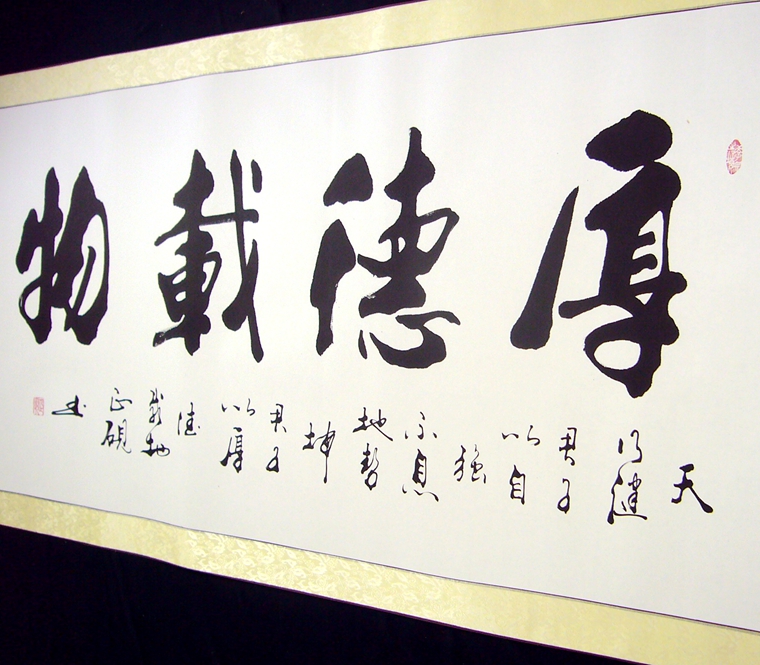 厚德載物
天行健君子以自強不息地勢坤君子以厚德載物
正硯書